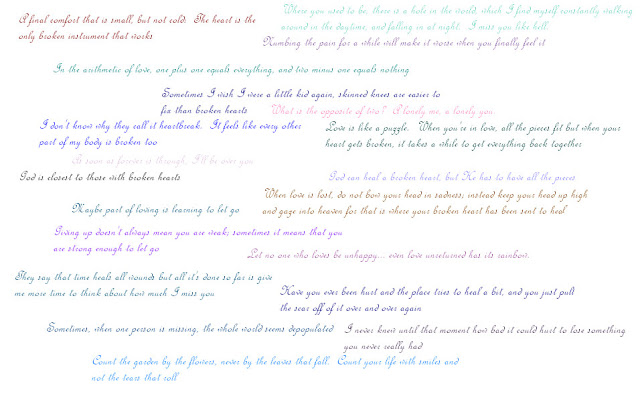 A final comfort that is small, but not cold. The heart is the
only broken instrument that works
Where you used to be, there is a hole in the world, which I find myself constantly walking
around in the daytime, and falling in at night. I miss you like hell.
Numbing the pain for a while will make it worse when you finally feel it
In the arithmetic of love, one plus one equals everything, and two minus one equals nothing
Sometimes I wish I were a little kid again, skinned knees are easier to
fix than broken hearts
What is the opposite of two? A lonely me, a lonely you.
I don't know why they call it heartbreak. It feels like every other
part of my body is broken too
Love is like a puzzle. When you're in love, all the pieces fit but when your
heart gets broken, it takes a while to get everything back together
As soon as forever is through, I'll be over you
God is closest to those with broken hearts
God can heal a broken heart, but He has to have all the pieces
When love is lost, do not bow your head in sadness; instead keep your head up high
and gaze into heaven for that is where your broken heart has been sent to heal
Maybe part of loving is learning to let go
Giving up doesn't always mean you are weak; sometimes it means that you
are strong enough to let go
Let no one who loves be unhappy... even love unreturned has its rainbow.
They say that time heals all wounds but all it's done so far is give
me more time to think about how much I miss you
Have you ever been hurt and the place tries to heal a bit, and you just pull
the scar off of it over and over again
Sometimes, when one person is missing, the whole world seems depopulated
I never knew until that moment how bad it could hurt to lose something
you never really had
Count the garden by the flowers, never by the leaves that fall. Count your life with smiles and
not the tears that roll